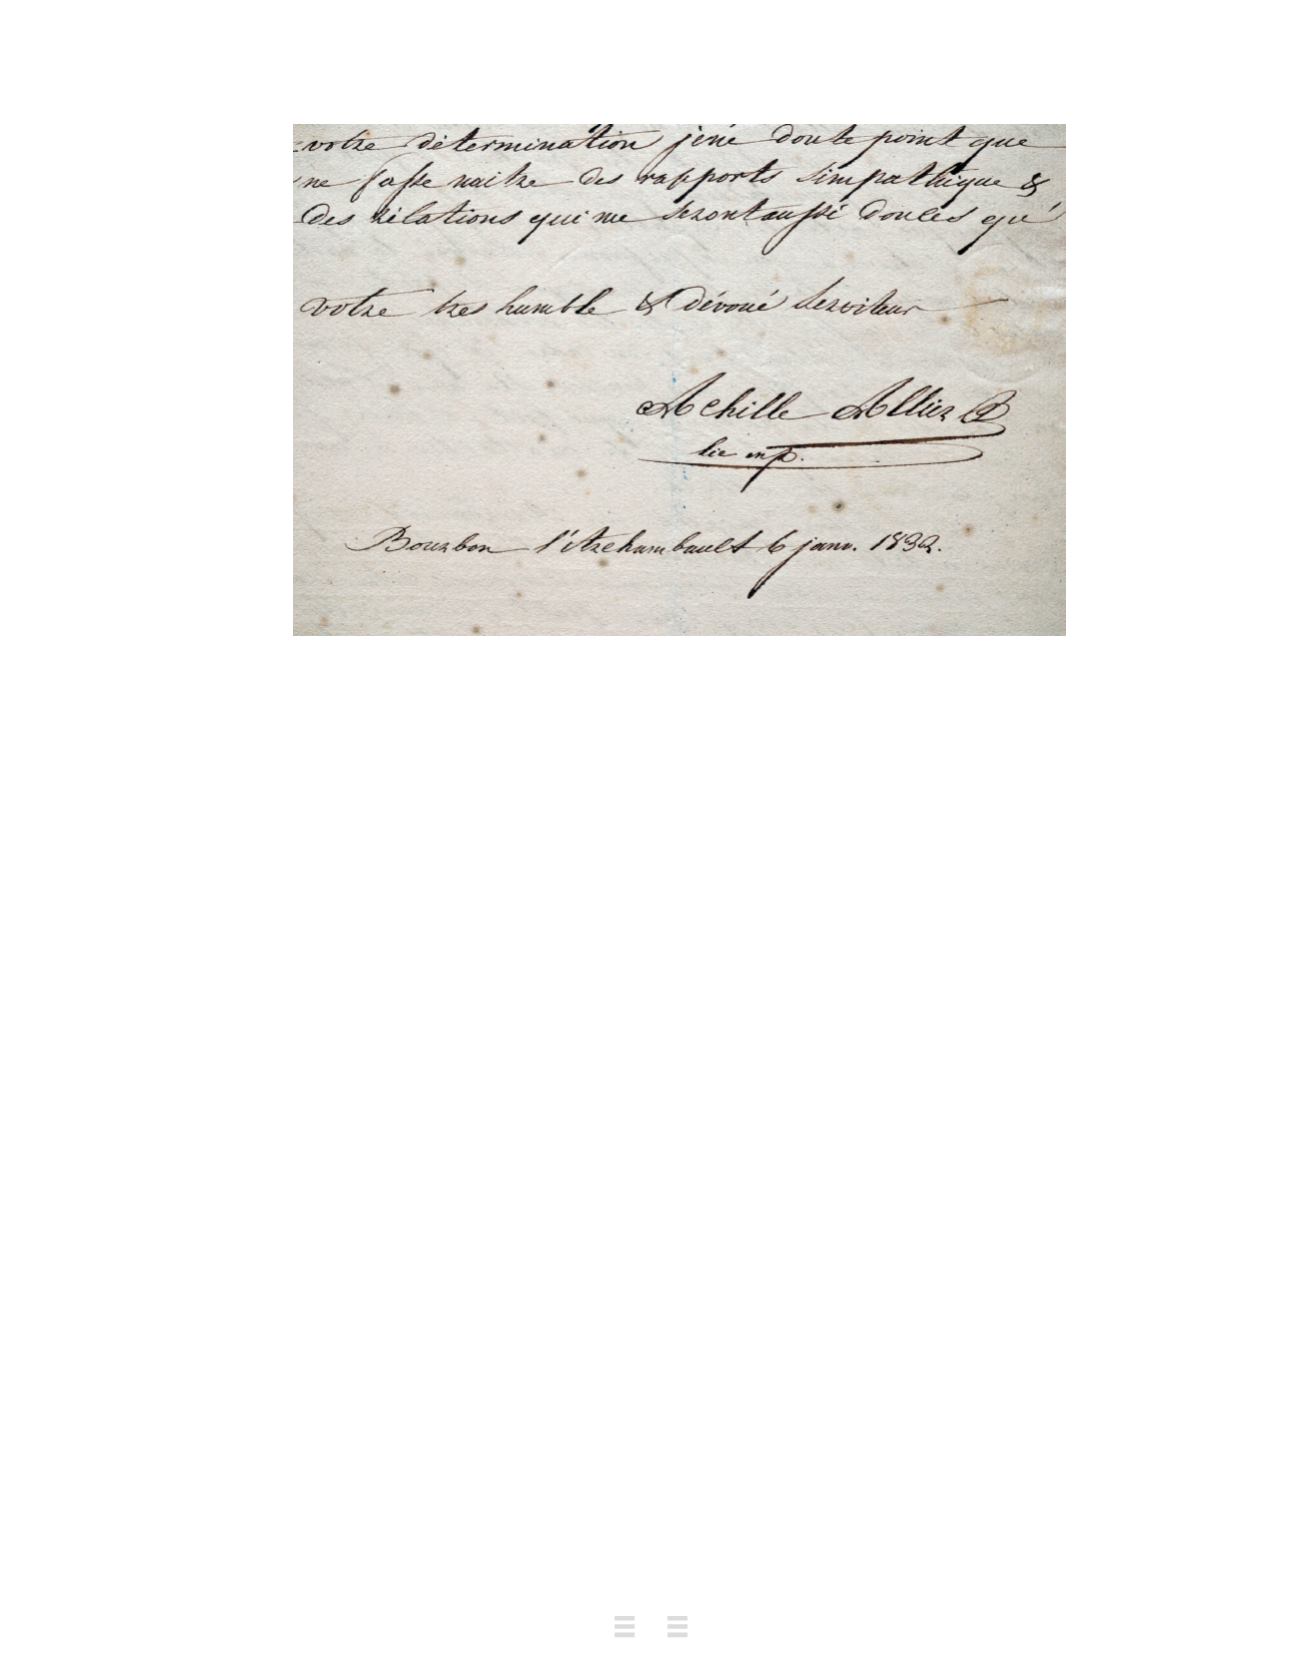 votre détermination je né doute point que
ne fasse naitre des rapports simpathique &
des rélations qui me seront aussi douces qu'
votre tres humble & dévoué serviteur
Achille Allier
lic en
Bourbon l'Archambault 6 janv. 1832.